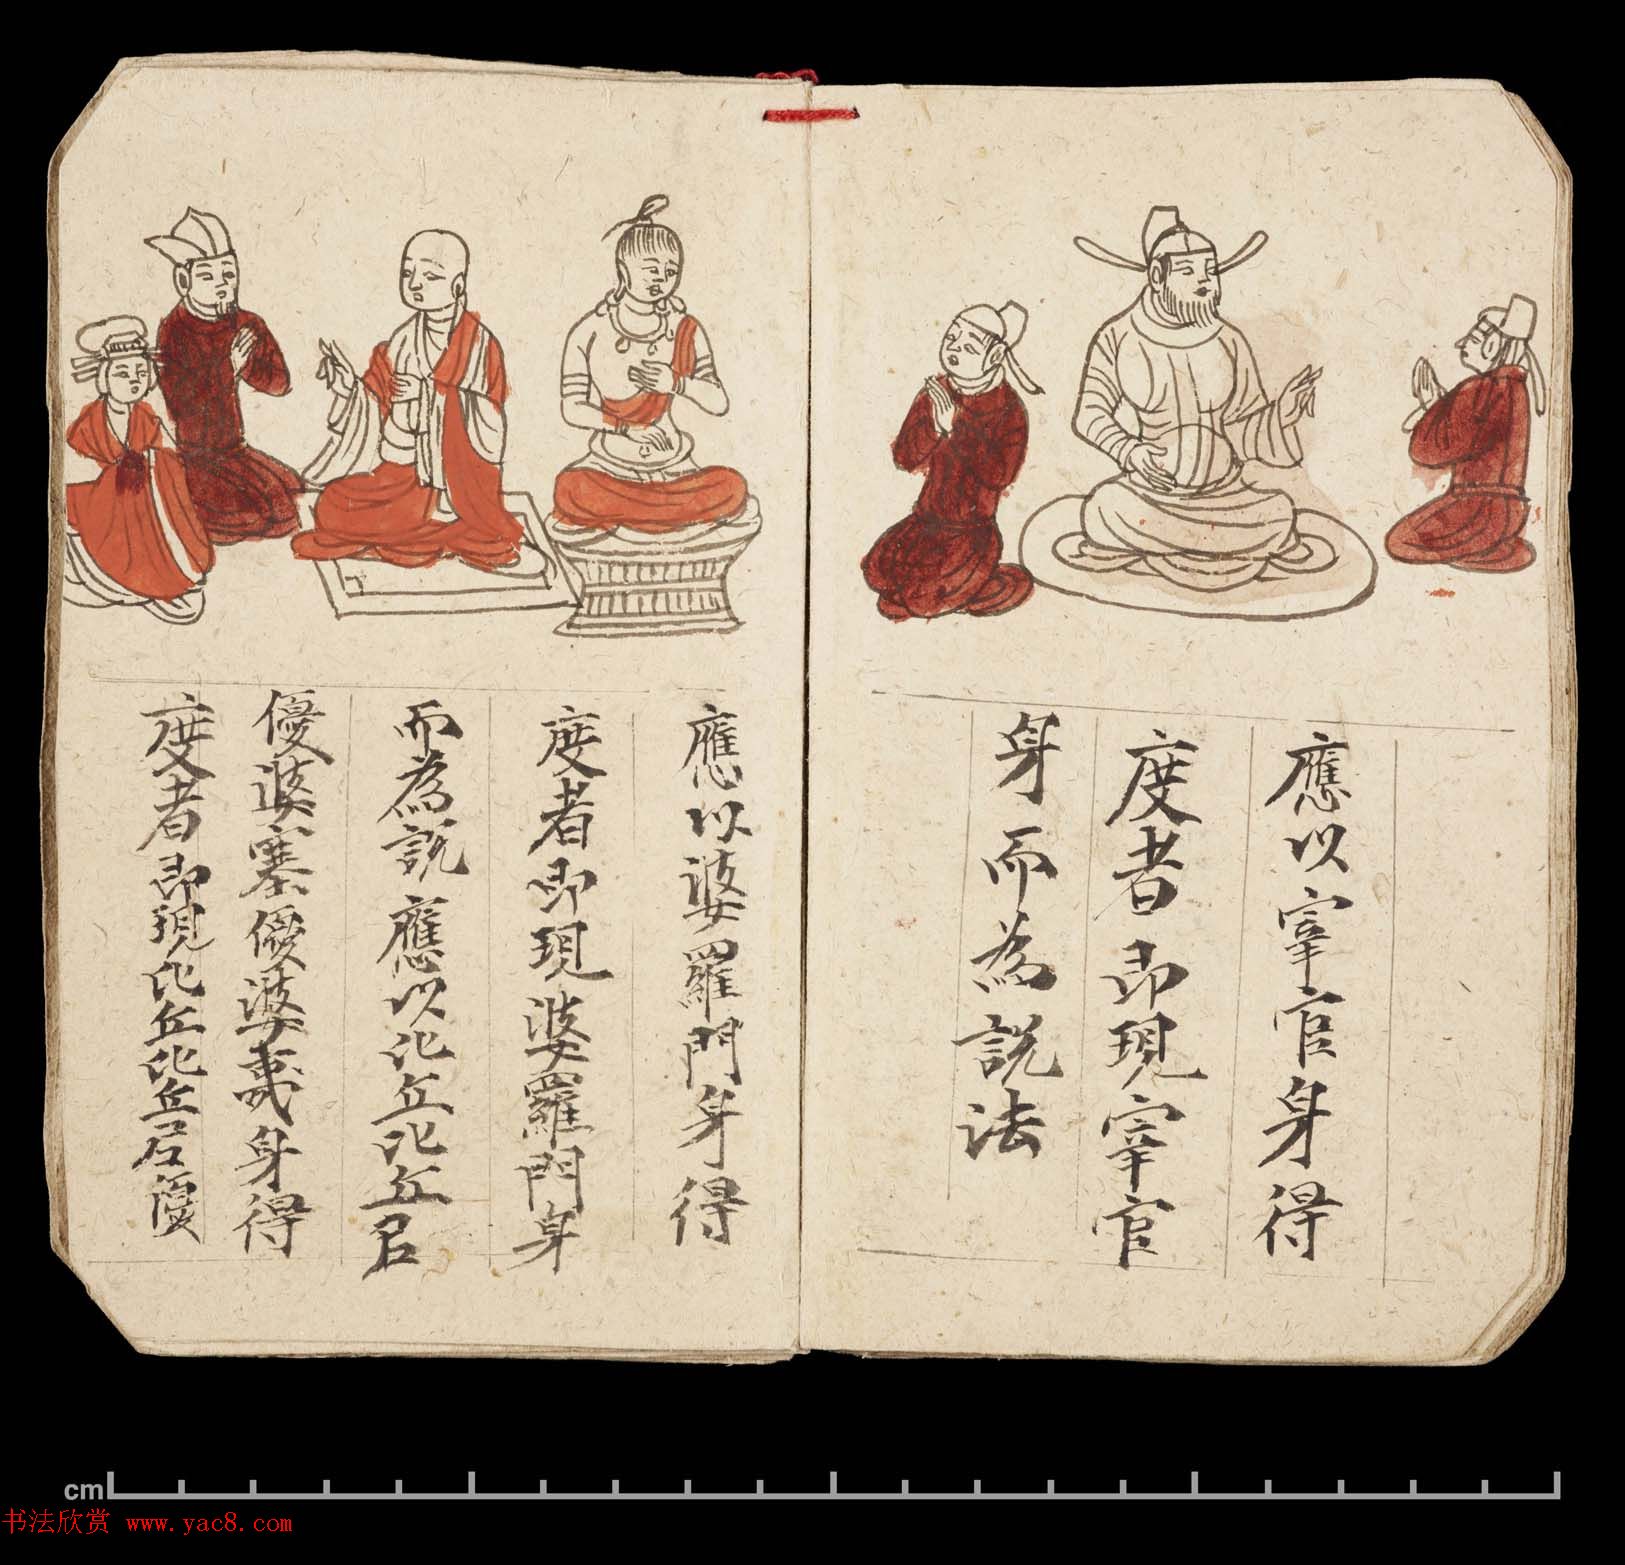 應以宰官身得
度者即現宰官
身而為說法
應以婆羅門身得
度者即現婆羅門身
而為説應以比丘比丘尼
優婆塞優婆夷身得
度者即現比丘比丘尼優
cm
书法欣赏 www.yac8.com